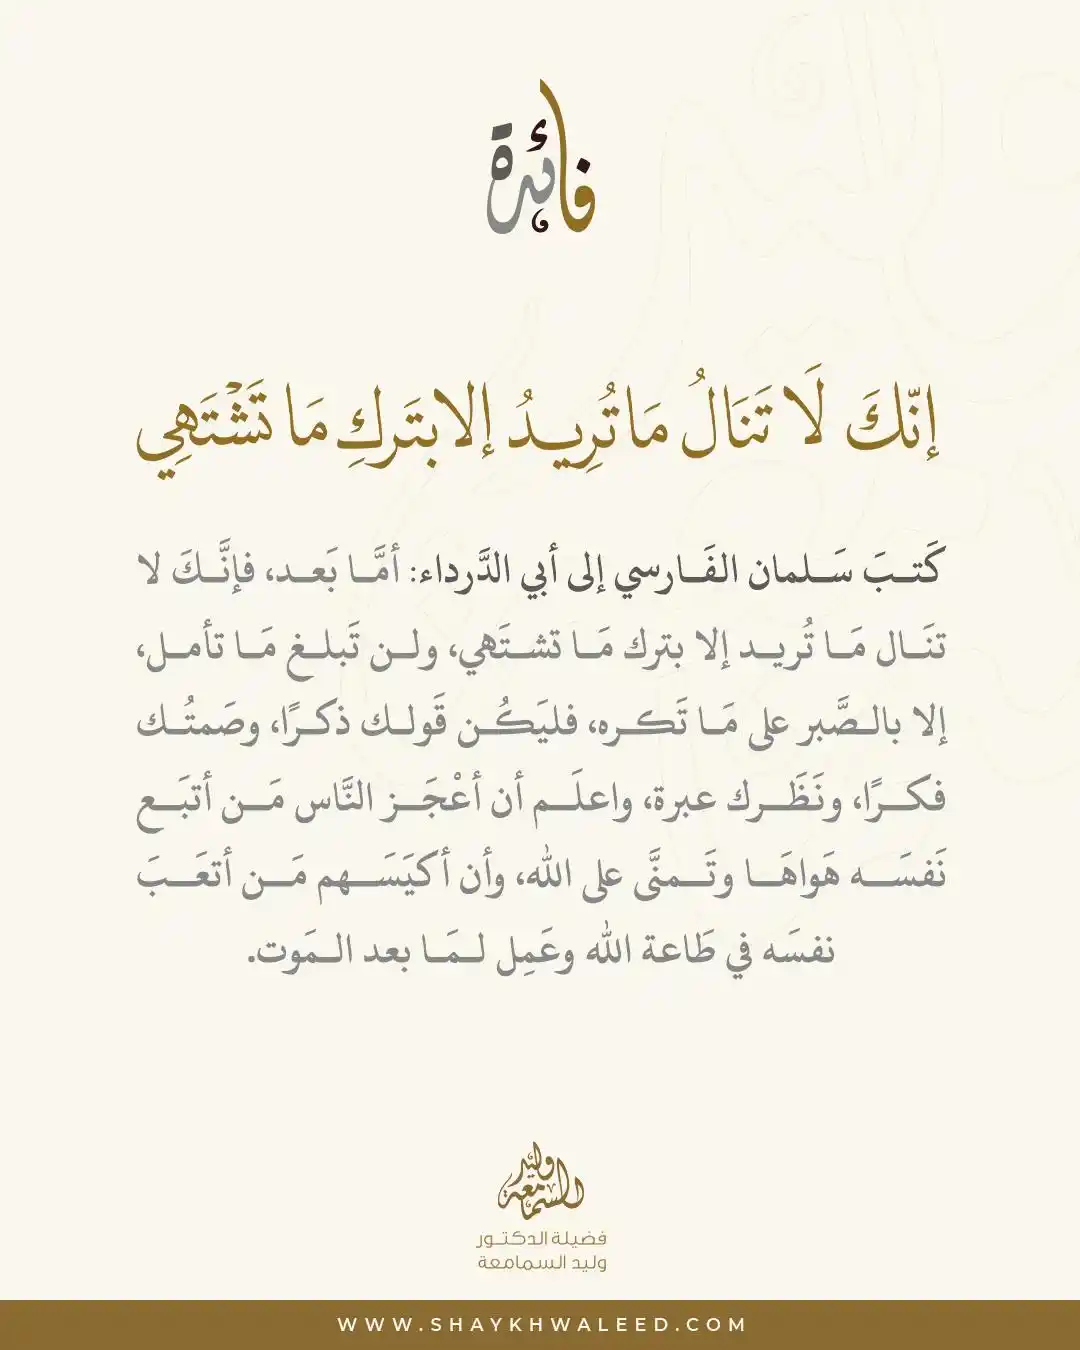 فائدة
إنّكَ لَا تَنَالُ مَا تُرِيدُ إلا بتَركِ مَا تَشْتَهِي
كَتبَ سَلمان الفَارسي إلى أبي الدَّرداء: أمَّا بَعد، فإنَّكَ لا
تنَال مَا تُريد إلا بترك مَا تشتَهي، ولن تَبلغ مَا تأمل،
إلا بالصَّبر على مَا تَكره، فليَكُن قَولك ذكرًا، وصَمتُك
فكرًا، ونَظَرك عبرة، واعلَم أن أعْجَز النَّاس مَن أتبَع
نَفسَه هَواهَا وتَمنَّى على الله، وأن أكيَسَهم مَن أتعَبَ
نفسَه في طَاعة الله وعَمِل لمَا بعد المَوت.
وليد السمامعة
فضيلة الدكتور
وليد السمامعة
WWW.SHAYKHWALEED.COM